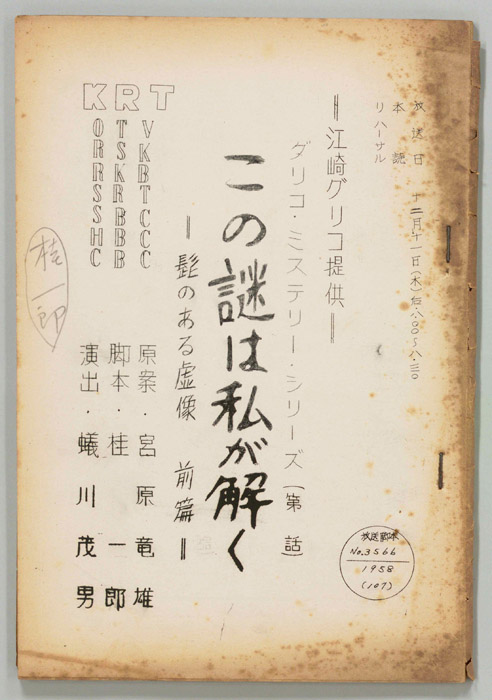 放送日 十二月十一日(木)后八.〇〇〜八.三〇
本読
リハーサル
＝江崎グリコ提供＝
グリコ・ミステリー・シリーズ(第 話)
この謎は私が解く
―髭のある虚像 前篇＝
KRT
VKBTCCC
TSKRBBB
ORRSSHC
原案・宮原竜雄
脚本・桂一郎
演出・蟻川茂男
桂一郎
放送脚本
No.3566
1958
(107)